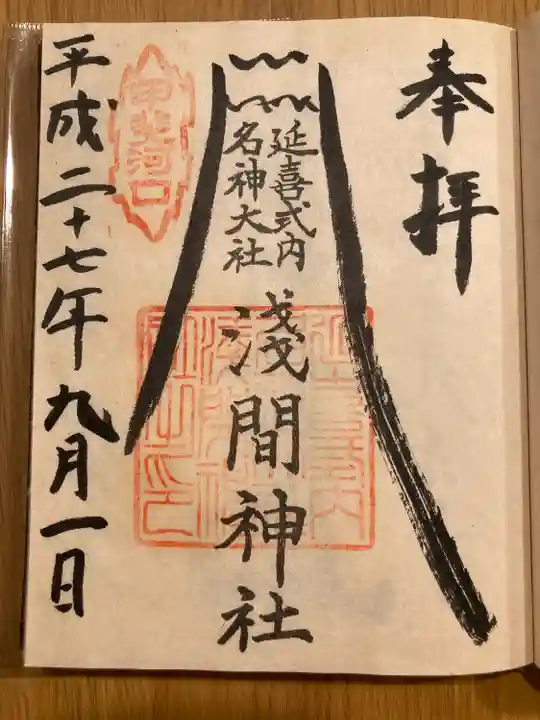 奉拝
延喜式内
名神大社
淺間神社
甲斐河口
平成二十七年九月一日